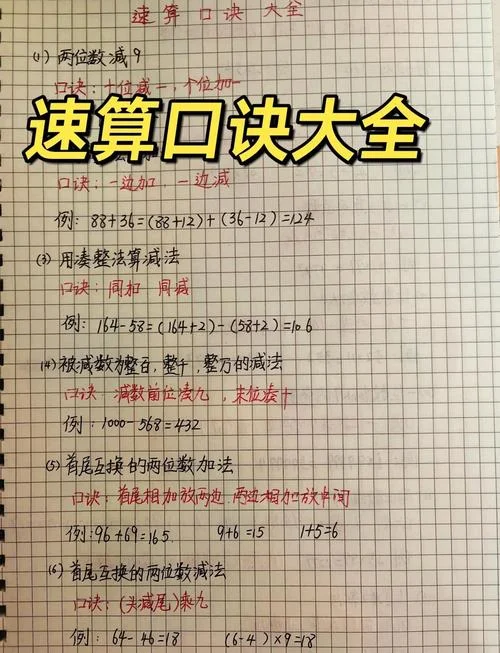 速算口诀大全
(1) 两位数减9
口诀：十位减一，个位加一
速算口诀大全
口诀：一边加，一边减
例：88+36=(88+12)+(36-12)=124
(3) 用凑整法算减法
口诀：同加 同减
例：164-58=(164+2)-(58+2)=106
(4) 被减数为整百，整千，整万的减法
口诀 减数前位凑九，末位凑十
例：1000-568=432
(5) 首尾互换的两位数加法
口诀：首尾相加放两边，两边相加放中间
例：96+69=165. 9+6=15 1+5=6
(6) 首尾互换的两位数减法
口诀：(头减尾)乘九
例：64-46=18 (6-4)×9=18